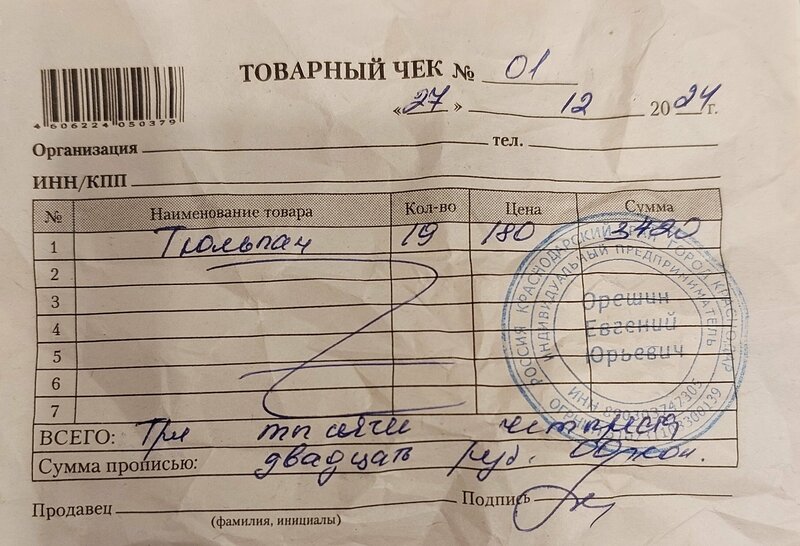 ТОВАРНЫЙ ЧЕК № 01
«27» 12 2024 г.
4 606224 050379
Организация тел.
ИНН/КПП
№ Наименование товара Кол-во Цена Сумма
1 Тюльпан 19 180 3420
2
3
4
5
6
7
ВСЕГО: Три тысячи четыреста
Сумма прописью: двадцать руб. 00 коп.
Продавец Подпись
(фамилия, инициалы)
РОССИЯ КРАСНОДАРСКИЙ КРАЙ ГОРОД КРАСНОДАР
ИНДИВИДУАЛЬНЫЙ ПРЕДПРИНИМАТЕЛЬ
Орешин
Евгений
Юрьевич
ИНН
ОГРНИП